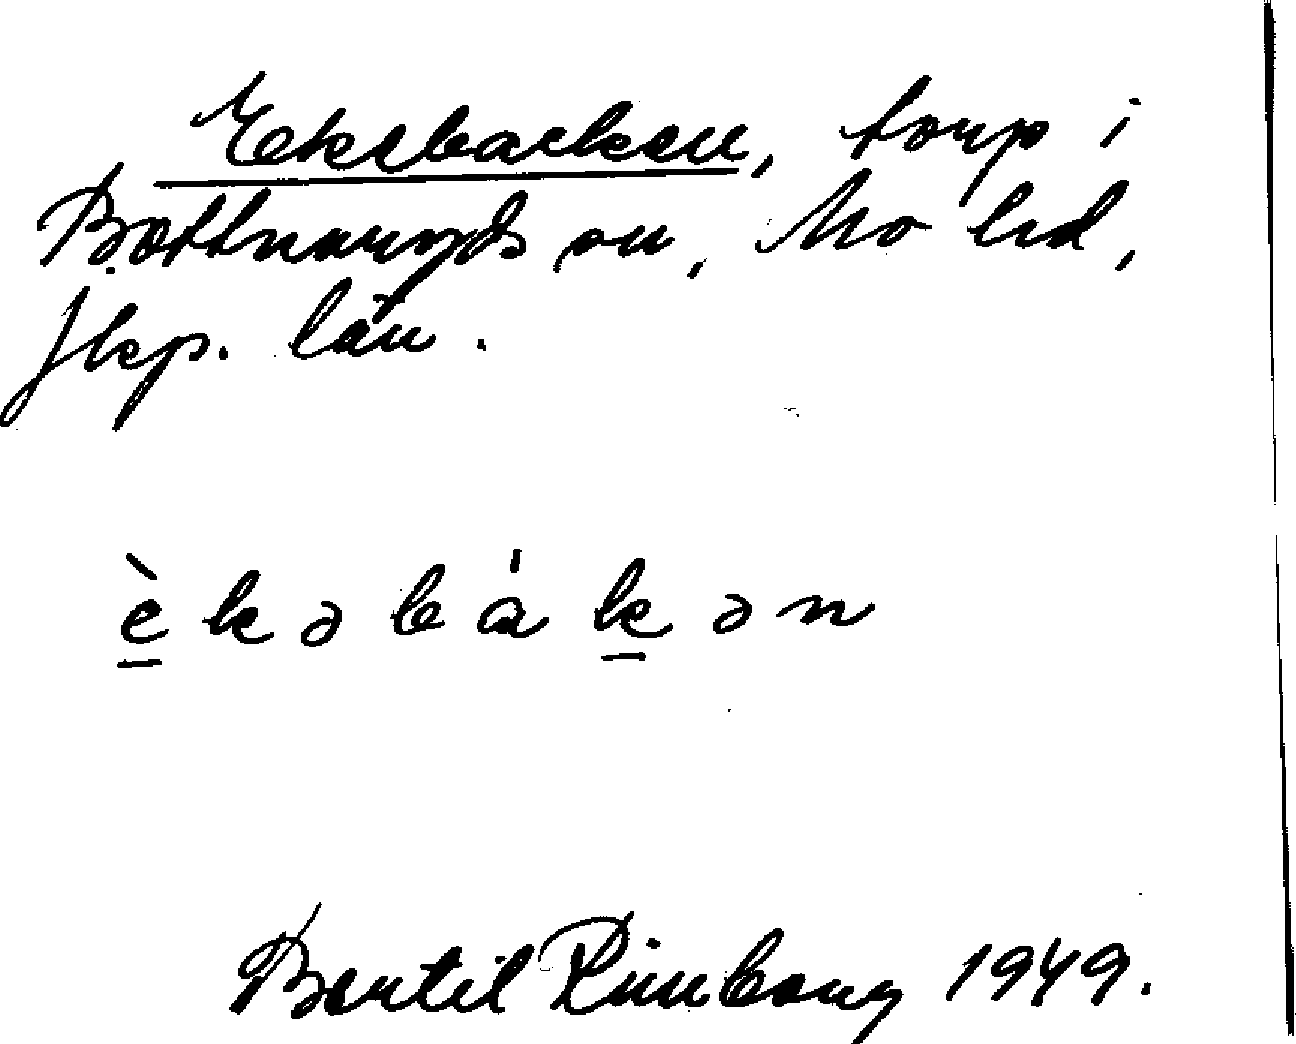 Ekebacken, torp i
Bottnaryds sn, Mo hd,
Jkp. län.
èkəbákən
Bertil Rimborg 1949.